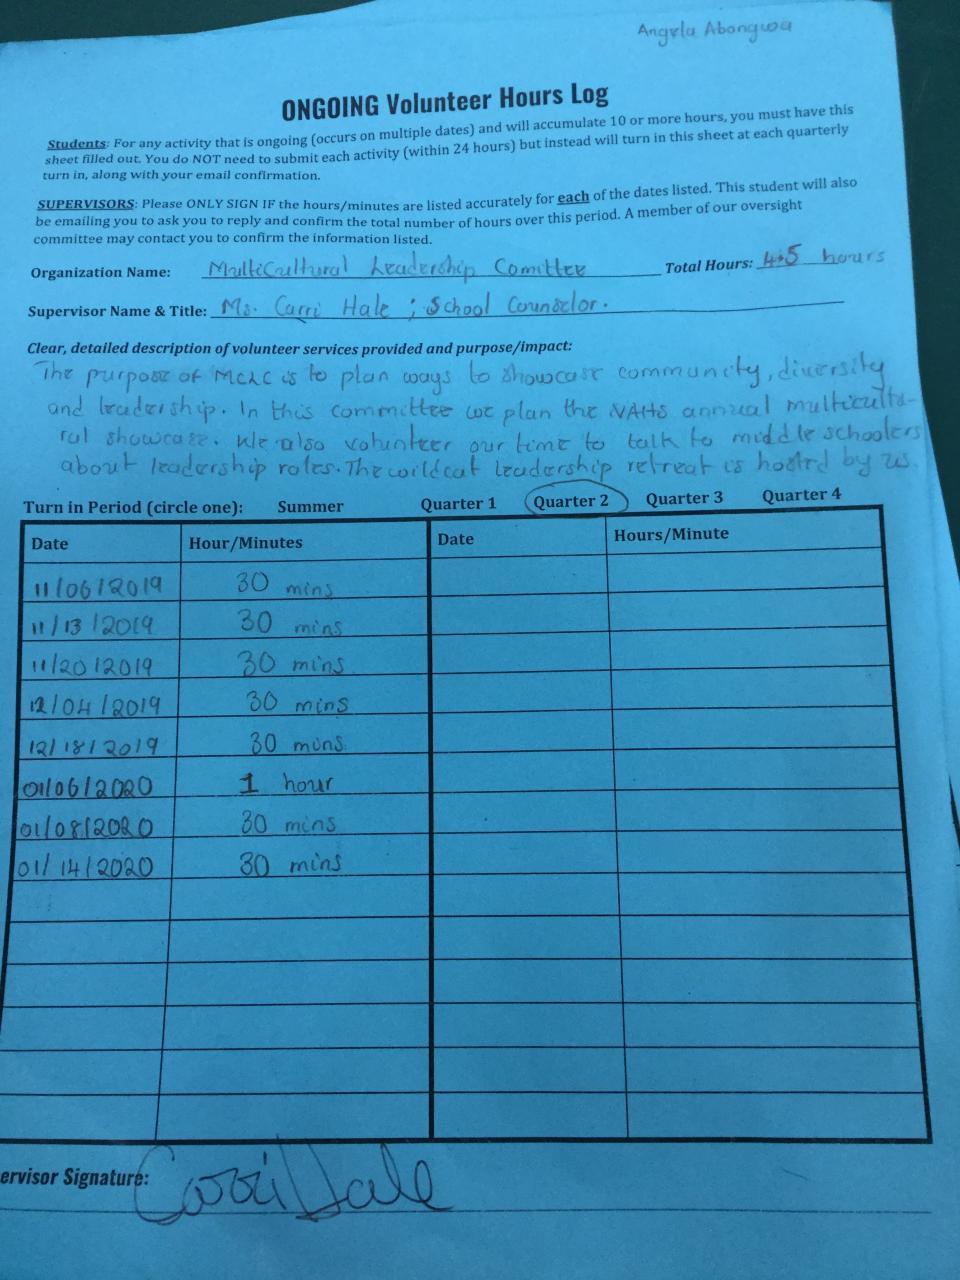 Angela Abongwa
ONGOING Volunteer Hours Log
Students: For any activity that is ongoing (occurs on multiple dates) and will accumulate 10 or more hours, you must have this
sheet filled out. You do NOT need to submit each activity (within 24 hours) but instead will turn in this sheet at each quarterly
turn in, along with your email confirmation.
SUPERVISORS: Please ONLY SIGN IF the hours/minutes are listed accurately for each of the dates listed. This student will also
be emailing you to ask you to reply and confirm the total number of hours over this period. A member of our oversight
committee may contact you to confirm the information listed.
Organization Name: MultiCultural Leadership Comittee Total Hours: 4.5 hours
Supervisor Name & Title: Ms. Carri Hale ; School Counselor.
Clear, detailed description of volunteer services provided and purpose/impact:
The purpose of MCLC is to plan ways to showcase community, diversity
and leadership. In this committee we plan the NAHS annual multicultu-
ral showcase. We also volunteer our time to talk to middle schoolers
about leadership roles. The wildcat leadership retreat is hosted by us.
Turn in Period (circle one): Summer Quarter 1 Quarter 2 Quarter 3 Quarter 4
Date Hour/Minutes Date Hours/Minute
11/06/2019 30 mins
11/13/2019 30 mins
11/20/2019 30 mins
12/04/2019 30 mins
12/18/2019 30 mins
01/06/2020 1 hour
01/08/2020 30 mins
01/14/2020 30 mins
ervisor Signature: Carri Hale